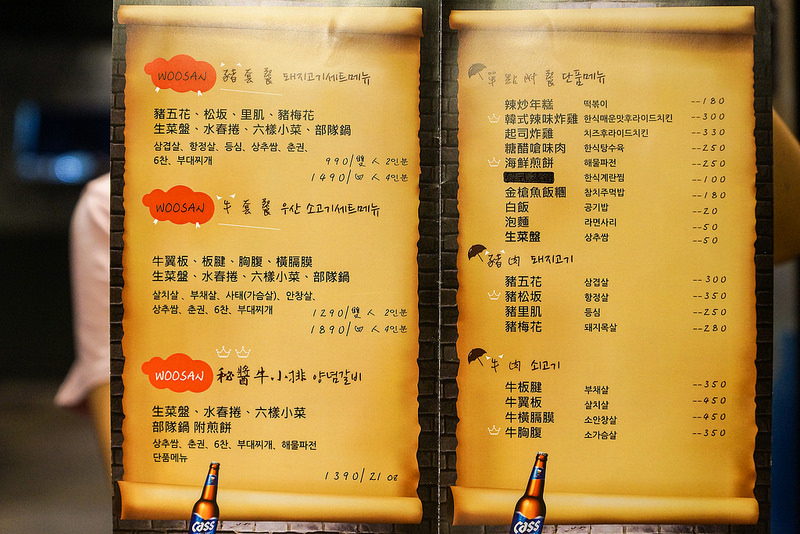 WOOSAN 豬 套 餐 돼지고기세트메뉴
豬五花、松坂、里肌、豬梅花
生菜盤、水春捲、六樣小菜、部隊鍋
삼겹살, 항정살, 등심, 상추쌈, 춘권,
6찬, 부대찌개
990/雙人 2인분
1490/四人 4인분
WOOSAN 牛 套 餐 우산 소고기세트메뉴
牛翼板、板腱、胸腹、橫膈膜
生菜盤、水春捲、六樣小菜、部隊鍋
살치살, 부채살, 사태(가슴살), 안창살,
상추쌈, 춘권, 6찬, 부대찌개
1290/雙人 2인분
1890/四人 4인분
WOOSAN 秘醬牛小排 양념갈비
生菜盤、水春捲、六樣小菜
部隊鍋 附煎餅
상추쌈, 춘권, 6찬, 부대찌개, 해물파전
단품메뉴
1390/21 oz
Cass
單 點 附 餐 단품메뉴
辣炒年糕 떡볶이 --180
韓式辣味炸雞 한식매운맛후라이드치킨 --300
起司炸雞 치즈후라이드치킨 --330
糖醋嗆味肉 한식탕수육 --250
海鮮煎餅 해물파전 --250
한식계란찜 --100
金槍魚飯糰 참치주먹밥 --180
白飯 공기밥 --20
泡麵 라면사리 --50
生菜盤 상추쌈 --50
豬 肉 돼지고기
豬五花 삼겹살 --300
豬松坂 항정살 --350
豬里肌 등심 --250
豬梅花 돼지목살 --280
牛 肉 쇠고기
牛板腱 부채살 --350
牛翼板 살치살 --450
牛橫膈膜 소안창살 --450
牛胸腹 소가슴살 --350
Cass